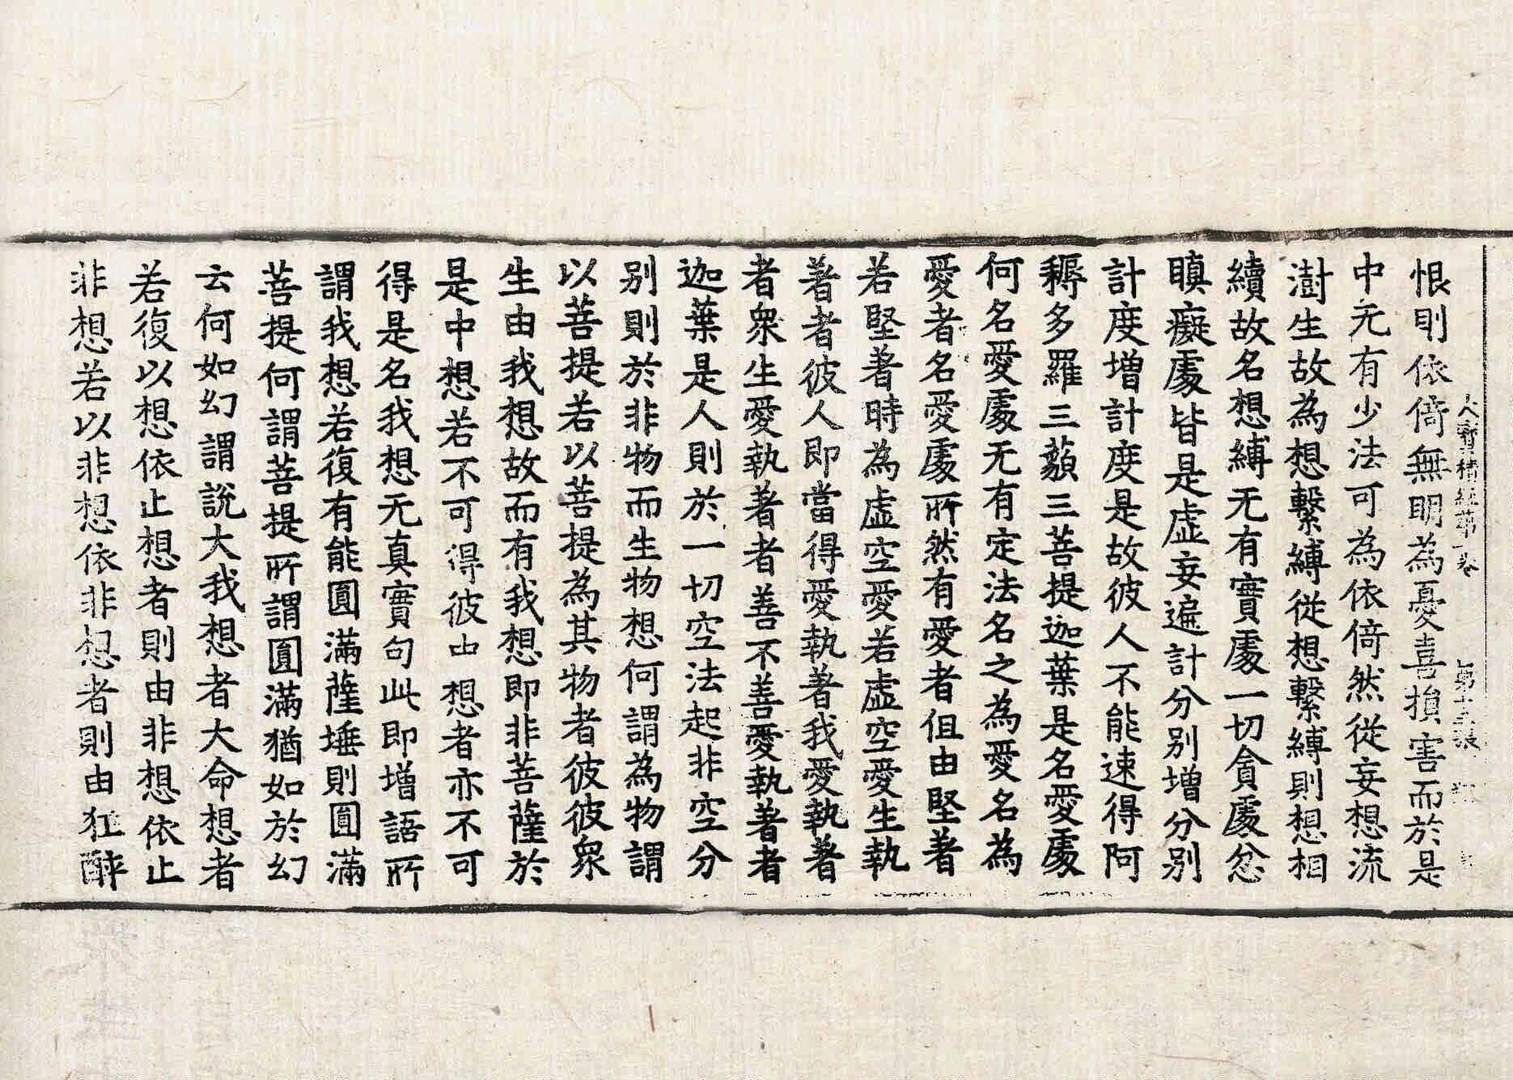 大寶積經第一卷 第十三張
恨則依倚無明為憂喜損害而於是
中无有少法可為依倚然從妄想流
澍生故為想繫縛從想繫縛則想相
續故名想縛无有實處一切貪處忿
瞋癡處皆是虛妄遍計分別增分別
計度增計度是故彼人不能速得阿
耨多羅三藐三菩提迦葉是名愛處
何名愛處无有定法名之為愛名為
愛者名愛處所然有愛者但由堅著
若堅著時為虛空愛若虛空愛生執
著者彼人即當得愛執著我愛執著
者眾生愛執著者善不善愛執著者
迦葉是人則於一切空法起非空分
別則於非物而生物想何謂為物謂
以菩提若以菩提為其物者彼彼眾
生由我想故而有我想即非菩薩於
是中想若不可得彼由想者亦不可
得是名我想无真實句此即增語所
謂我想若復有能圓滿薩埵則圓滿
菩提何謂菩提所謂圓滿猶如於幻
云何如幻謂說大我想者大命想者
若復以想依止想者則由非想依止
非想若以非想依非想者則由狂醉